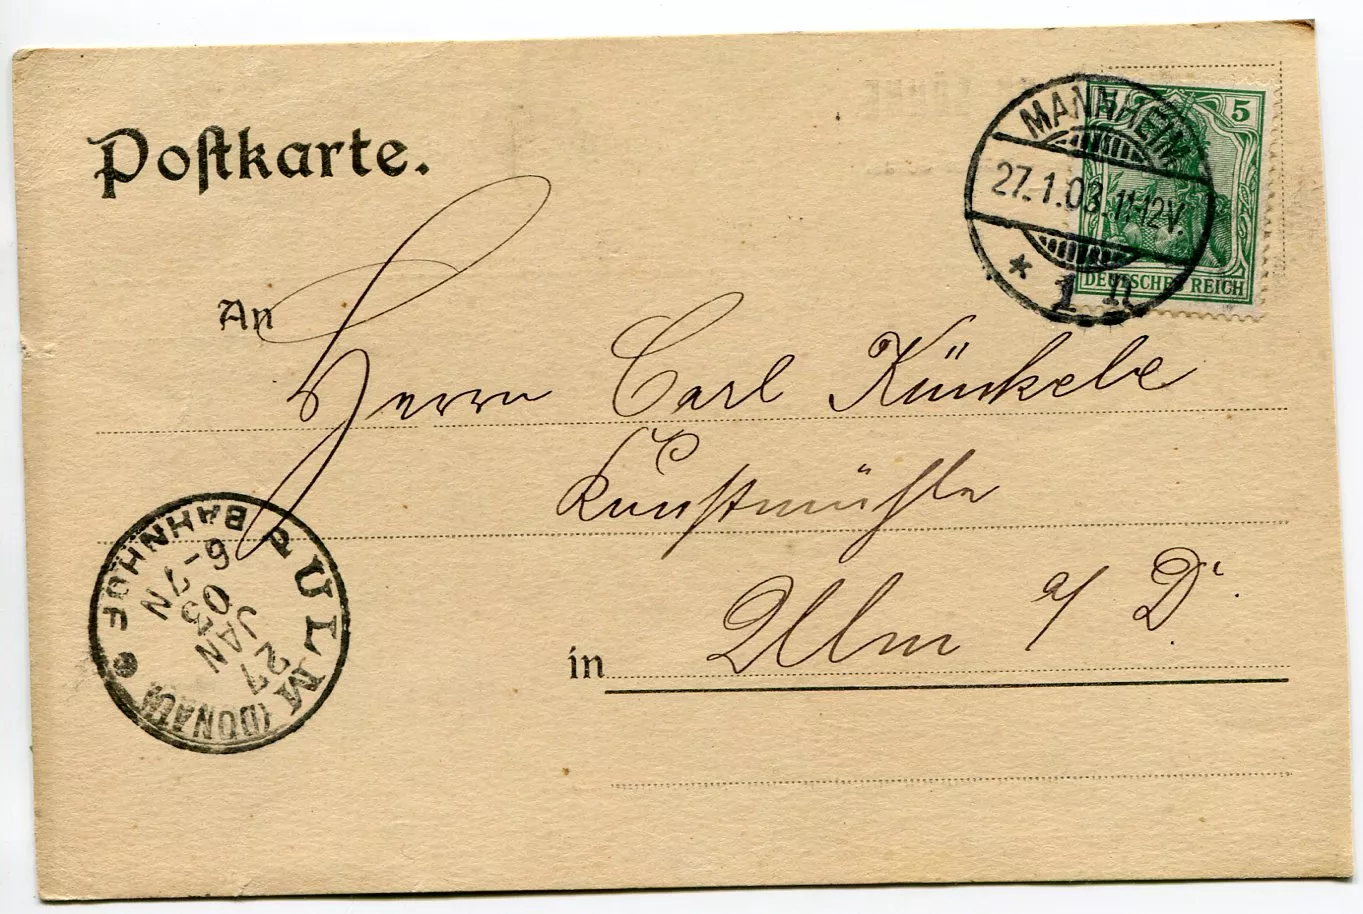 Postkarte.
MANNHEIM
27.1.03.11-12V.
* 1 n
5
DEUTSCHES REICH
An
Herrn Carl Künkele
Kunstmühle
in Ulm a/D.
ULM (DONAU)
BAHNHOF
6-7N
03
JAN
27